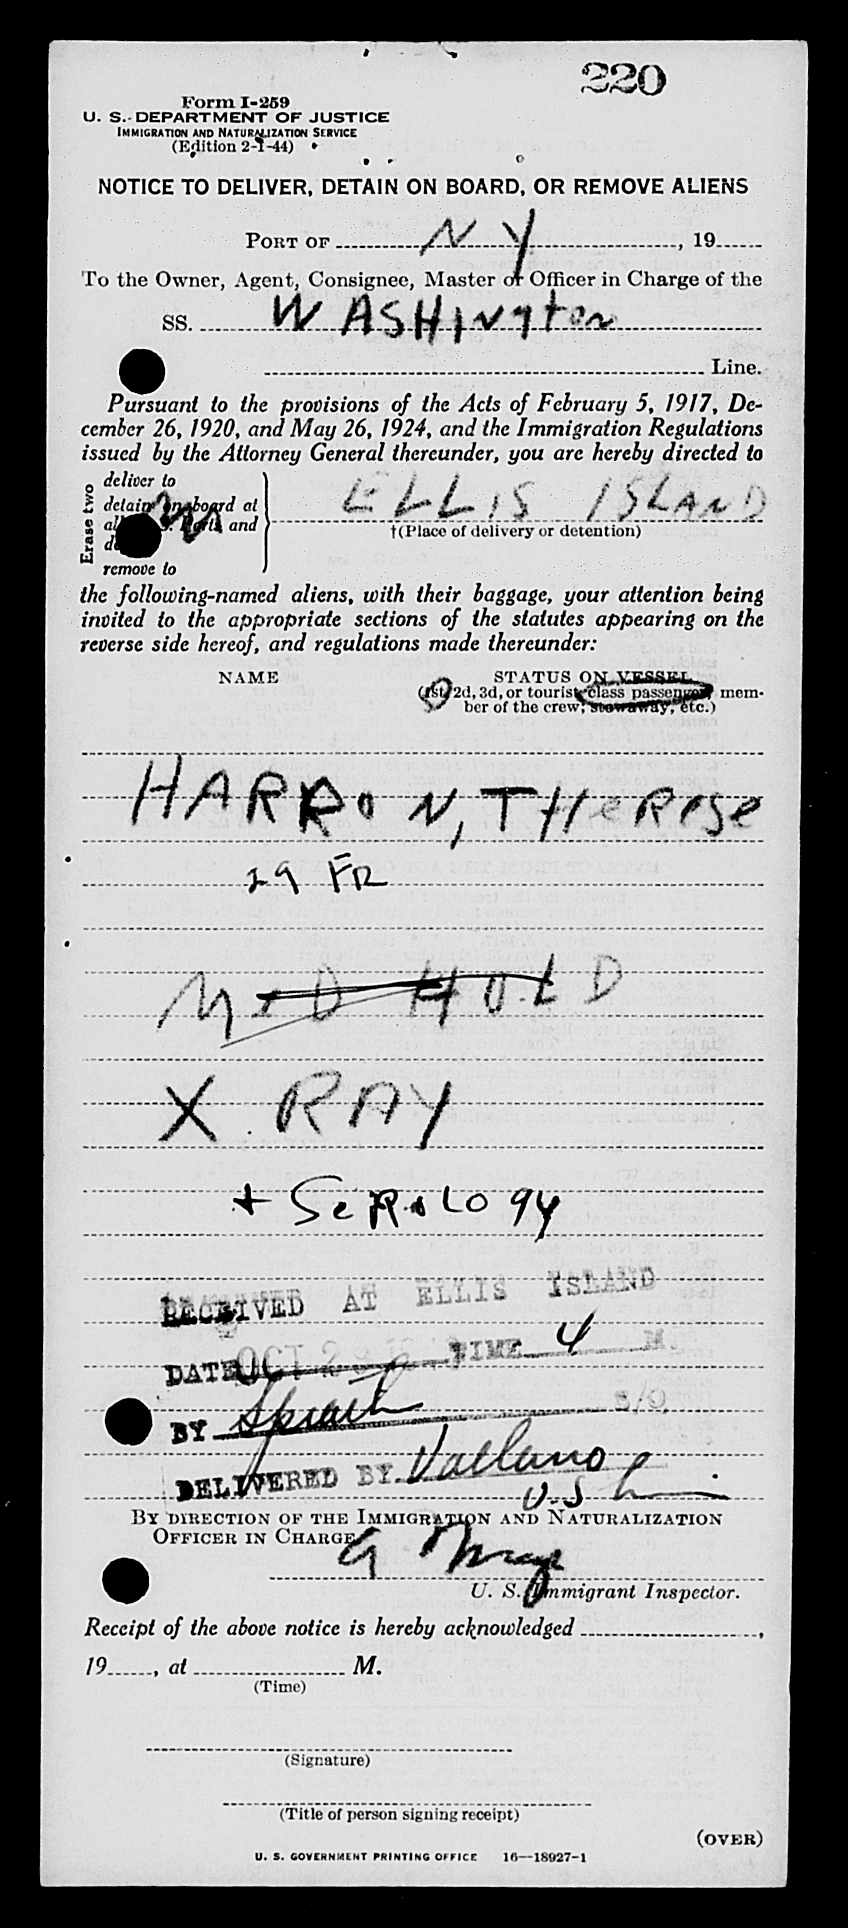 220
Form I-259
U. S. DEPARTMENT OF JUSTICE
IMMIGRATION AND NATURALIZATION SERVICE
(Edition 2-1-44)
NOTICE TO DELIVER, DETAIN ON BOARD, OR REMOVE ALIENS
PORT OF N Y, 19
To the Owner, Agent, Consignee, Master or Officer in Charge of the
SS. WASHINgton
Line.
Pursuant to the provisions of the Acts of February 5, 1917, De-
cember 26, 1920, and May 26, 1924, and the Immigration Regulations
issued by the Attorney General thereunder, you are hereby directed to
Erase two
deliver to
detain on board at
and
remove to
ELLIS ISLAND
†(Place of delivery or detention)
the following-named aliens, with their baggage, your attention being
invited to the appropriate sections of the statutes appearing on the
reverse side hereof, and regulations made thereunder:
NAME STATUS ON VESSEL
(1st, 2d, 3d, or tourist class passenger, mem-
ber of the crew, stowaway, etc.)
HARRON, THeResе
29 FR
MeD HOLD
X RAY
+ SeRoLogy
RECEIVED AT ELLIS ISLAND
DATE OCT TIME 4 M.
BY S/O
DELIVERED BY
BY DIRECTION OF THE IMMIGRATION AND NATURALIZATION
OFFICER IN CHARGE
U. S. Immigrant Inspector.
Receipt of the above notice is hereby acknowledged ,
19 , at M.
(Time)
(Signature)
(Title of person signing receipt)
(OVER)
U. S. GOVERNMENT PRINTING OFFICE 16—18927-1